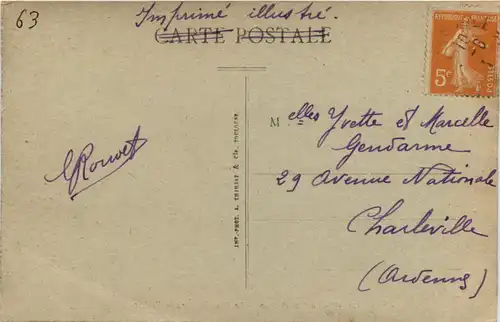 63
Imprimé illustré.
CARTE POSTALE
RÉPUBLIQUE FRANÇAISE
5c
POSTES
Melles Yvette et Marcelle
Gendarme
29 Avenue Nationale
Charleville
(Ardennes)
IMP.-PHOT. A. THIRIAT & Cie, TOULOUSE